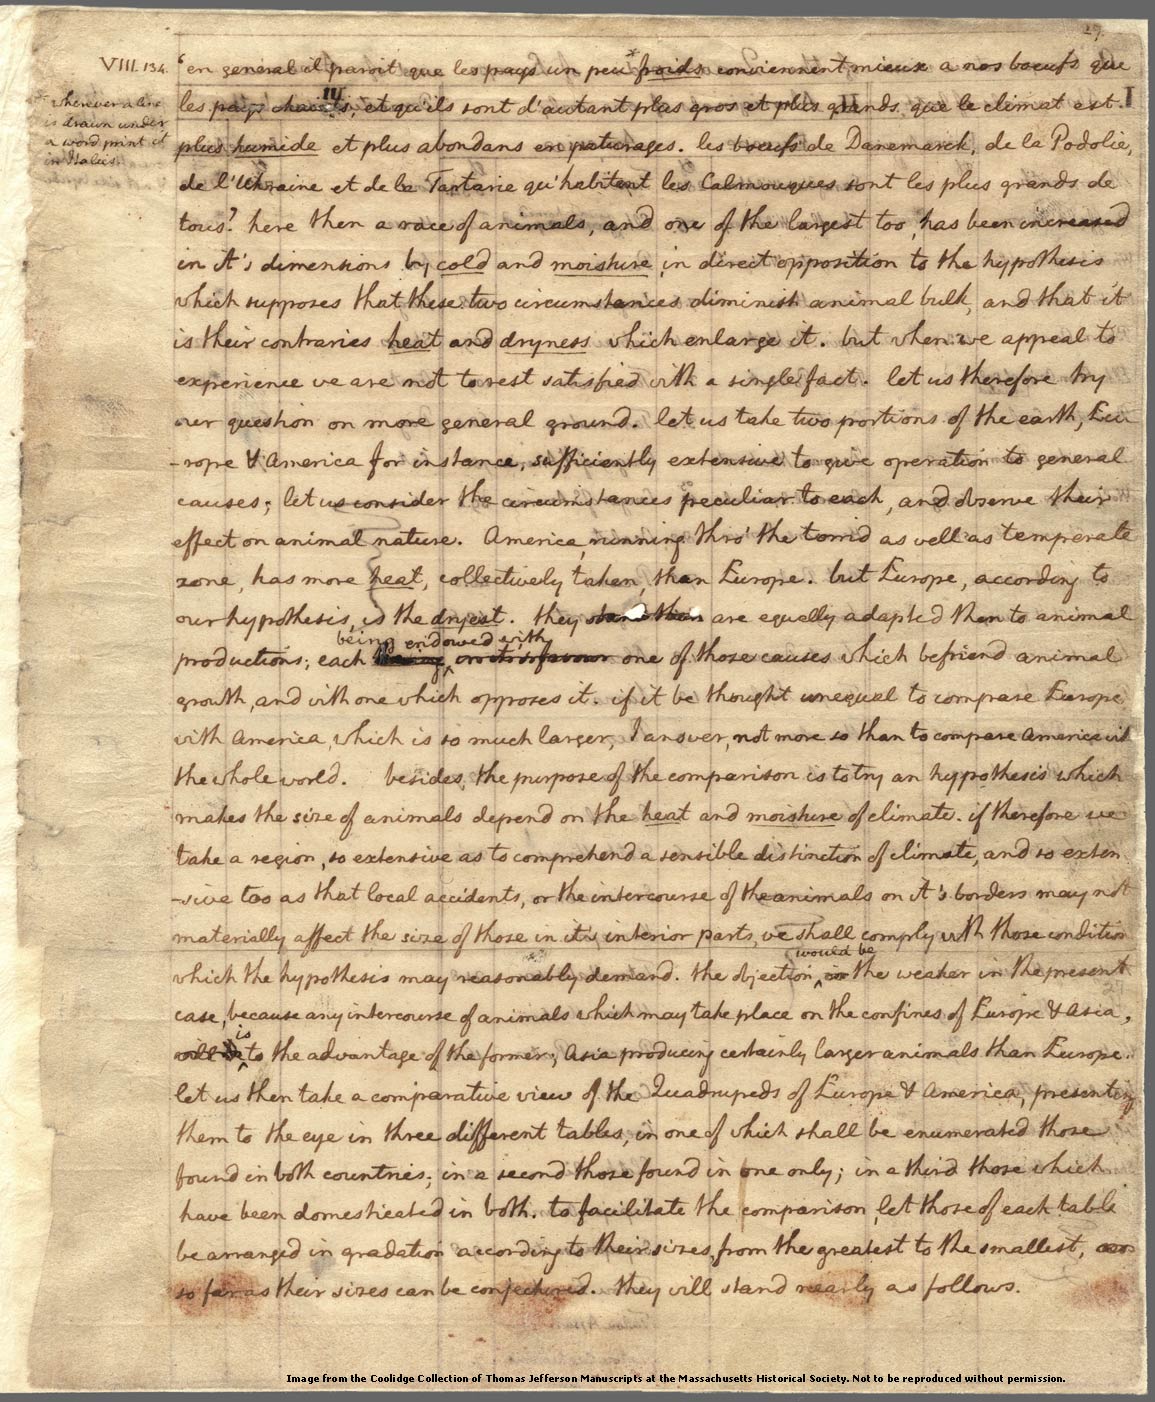 27
VIII. 134. 'en general il paroit que les pays un peu * froids conviennent mieux a nos boeufs que
les pays chauds, et qu'ils sont d'autant plus gros et plus grands que le climat est
plus humide et plus abondans en paturages. les boeufs de Danemarck, de la Podolie,
de l'Ukraine et de la Tartarie qu'habitent les Calmouques sont les plus grands de
tous.' here then a race of animals, and one of the largest too, has been increased
in it's dimensions by cold and moisture, in direct opposition to the hypothesis
which supposes that these two circumstances diminish animal bulk, and that it
is their contraries heat and dryness which enlarge it. but when we appeal to
experience we are not to rest satisfied with a single fact. let us therefore try
our question on more general ground. let us take two portions of the earth, Eu-
-rope & America for instance, sufficiently extensive to give operation to general
causes; let us consider the circumstances peculiar to each, and observe their
effect on animal nature. America, running thro' the torrid as well as temperate
zone, has more heat, collectively taken, than Europe. but Europe, according to
our hypothesis, is the dryest. they are equally adapted then to animal
being endowed with
productions; each one of those causes which befriend animal
growth, and with one which opposes it. if it be thought unequal to compare Europe
with America, which is so much larger, I answer, not more so than to compare America with
the whole world. besides, the purpose of the comparison is to try an hypothesis which
makes the size of animals depend on the heat and moisture of climate. if therefore we
take a region, so extensive as to comprehend a sensible distinction of climate, and so exten
-sive too as that local accidents, or the intercourse of the animals on it's borders may not
materially affect the size of those in it's interior parts, we shall comply with those conditions
would be
which the hypothesis may reasonably demand. the objection, the weaker in the present
case, because any intercourse of animals which may take place on the confines of Europe & Asia,
is
to the advantage of the former, Asia producing certainly larger animals than Europe.
let us then take a comparative view of the Quadrupeds of Europe & America, presenting
them to the eye in three different tables, in one of which shall be enumerated those
found in both countries; in a second those found in one only; in a third those which
have been domesticated in both. to facilitate the comparison, let those of each table
be arranged in gradation according to their sizes, from the greatest to the smallest,
so far as their sizes can be conjectured. they will stand nearly as follows.
* wherever a line
is drawn under
a word print it
in Italics.
Image from the Coolidge Collection of Thomas Jefferson Manuscripts at the Massachusetts Historical Society. Not to be reproduced without permission.